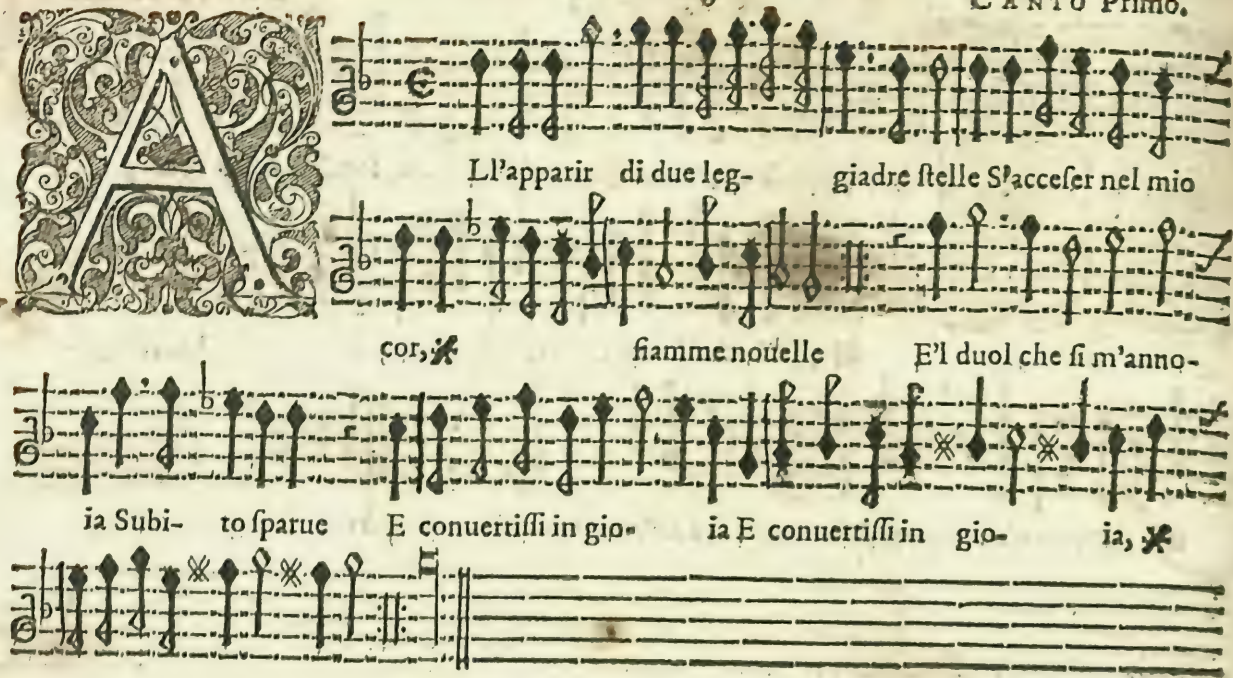 CANTO Primo.
A
Ll'apparir di due leg- giadre ſtelle S'acceſer nel mio
cor, fiamme nouelle E'l duol che ſi m'anno-
ia Subi- to ſparue E conuertiſſi in gio- ia E conuertiſſi in gio- ia,